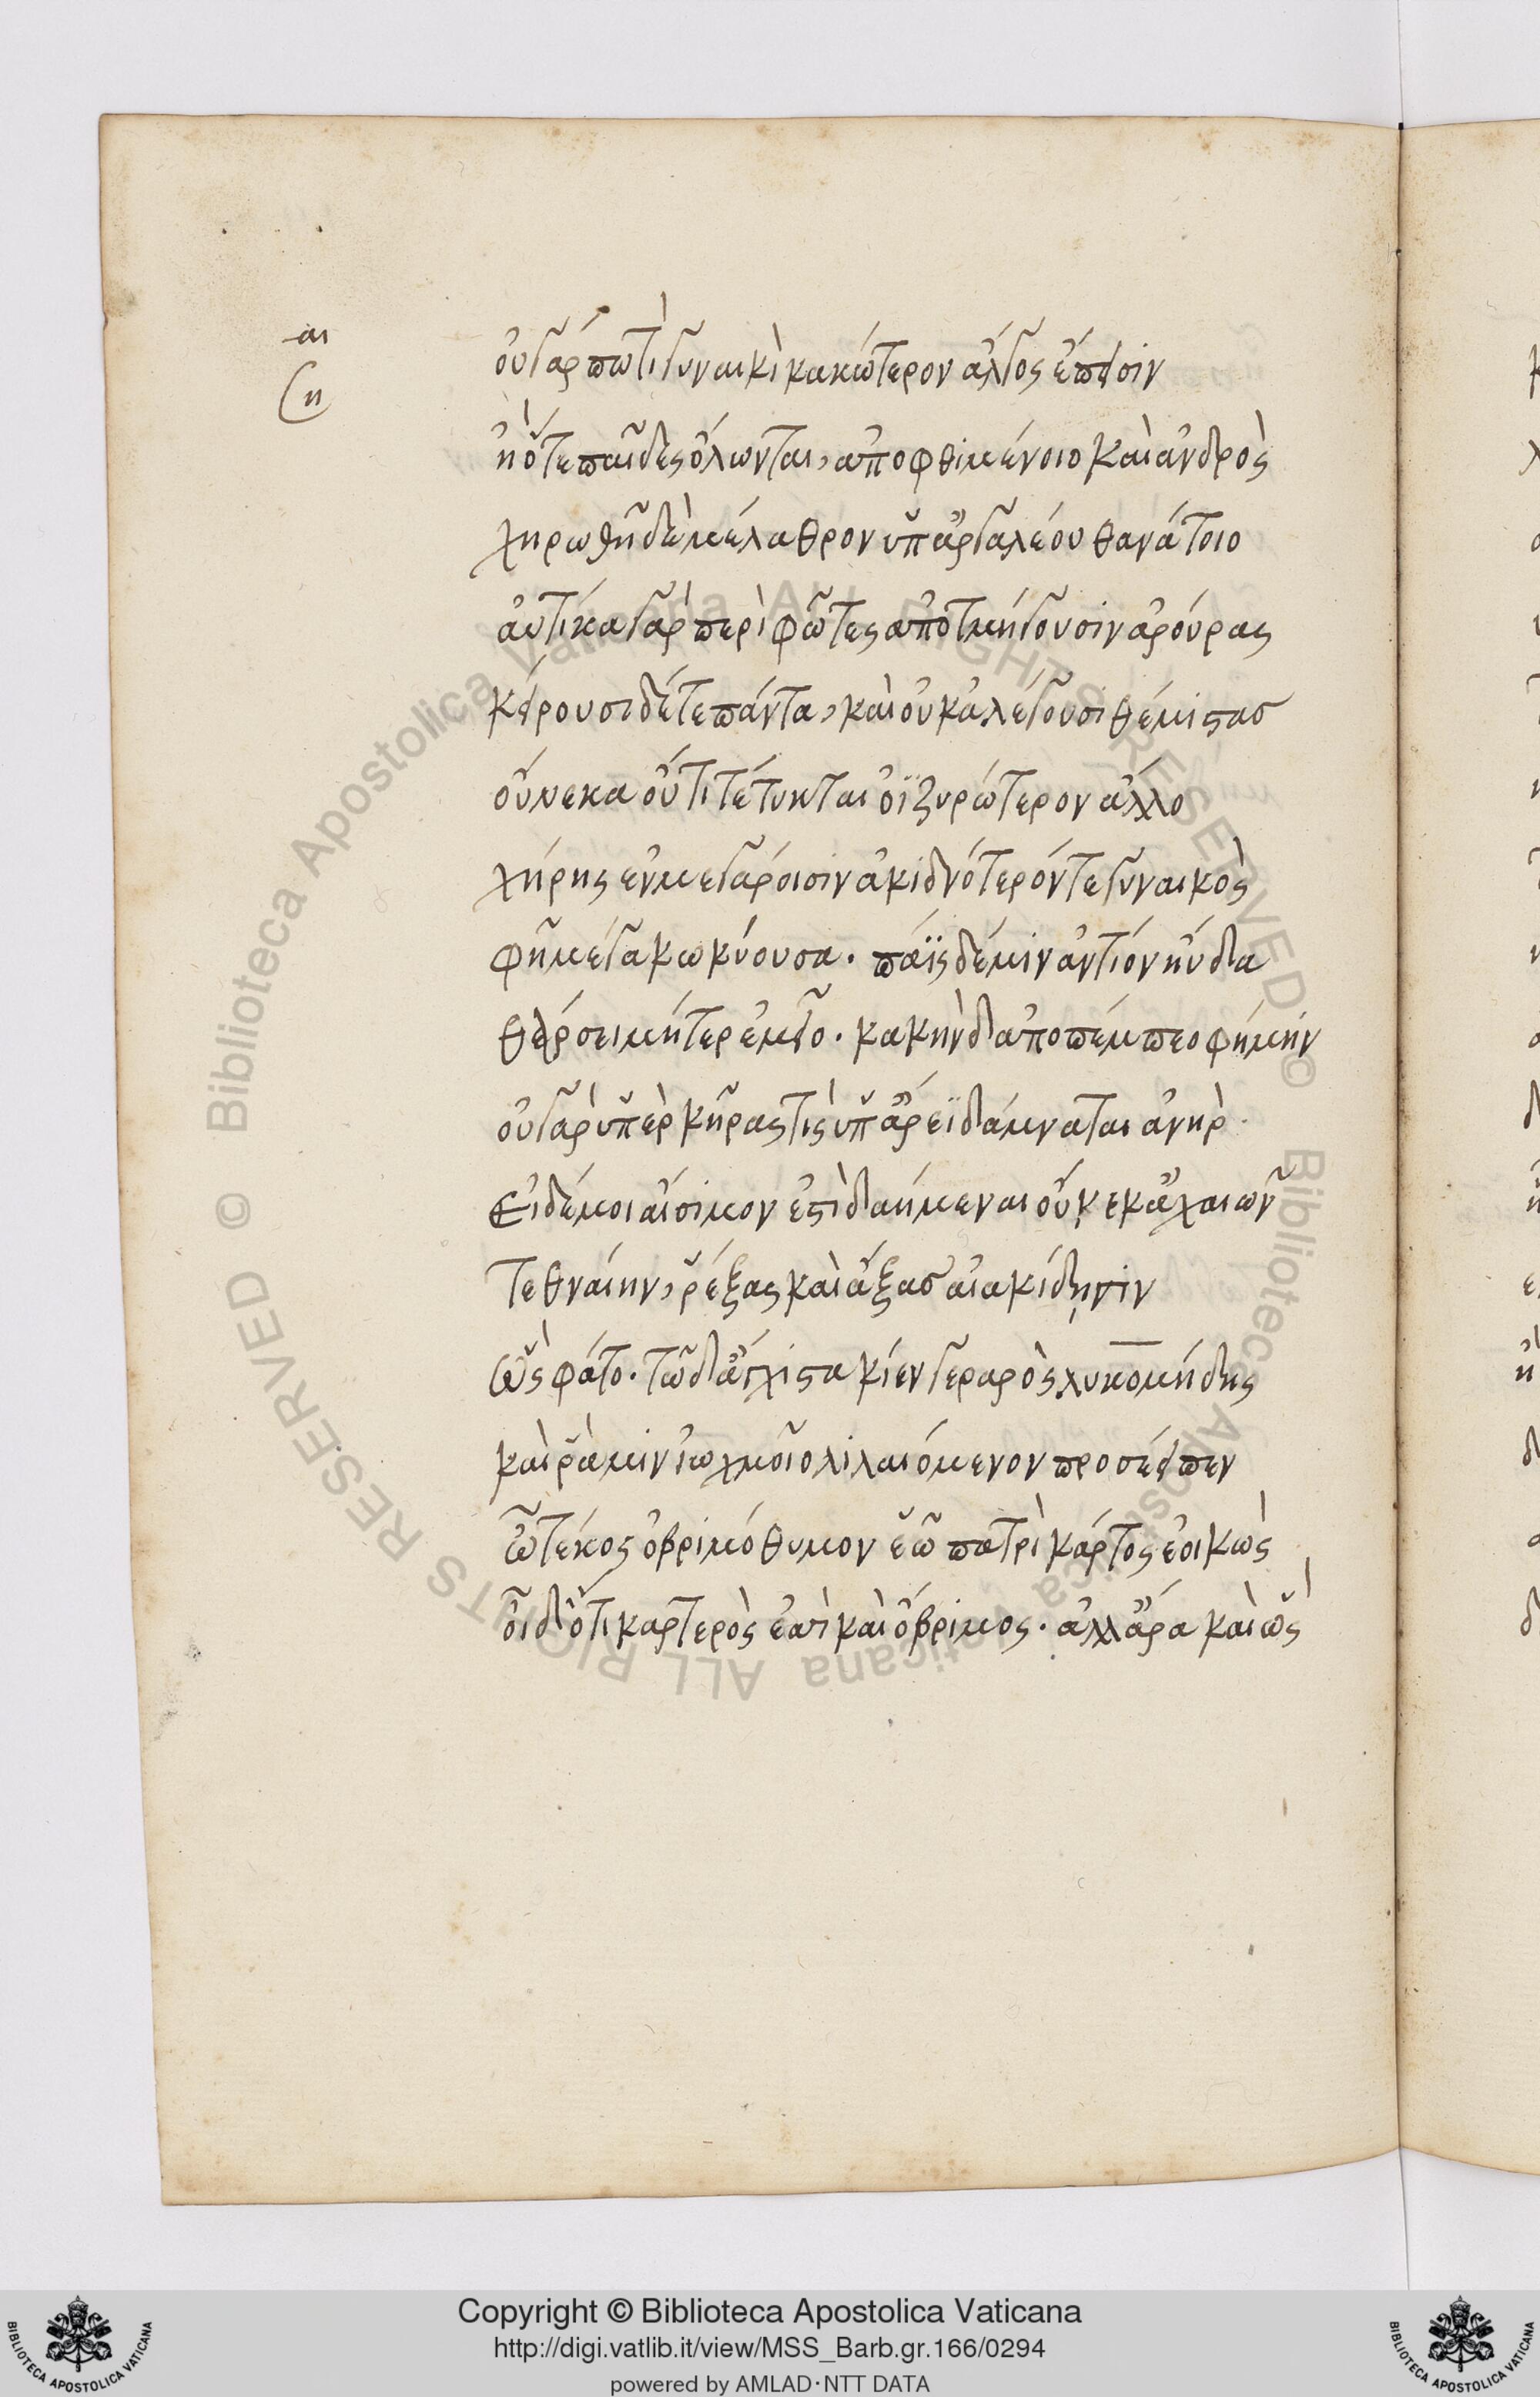 αι
η
οὐ γάρ πώ τι γυναικὶ κακώτερον ἄλγος ἔπεισιν
ἢ ὅτε παῖδες ὄλωνται, ἀποφθιμένοιο καὶ ἀνδρὸς
χηρωθῆ δὲ μέλαθρον ὑπ' ἀργαλέου θανάτοιο
αὐτίκα γὰρ περὶ φῶτες ἀποτμήγουσιν ἀρούρας
κείρουσι δέ τε πάντα, καὶ οὐκ ἀλέγουσι θέμιστας
οὕνεκα οὔ τι τέτυκται ὀϊζυρώτερον ἄλλο
χήρης ἐν μεγάροισιν ἀκιδνότερόν τε γυναικὸς
φῆ μέγα κωκύουσα. πάϊς δέ μιν ἀντίον ηὔδα
θάρσει μήτερ ἐμεῖο. κακὴν δ' ἀποπέμπεο φήμην
οὐ γὰρ ὑπὲρ κῆράς τις ὑπ' ἄρεϊ δάμναται ἀνὴρ.
εἰ δέ μοι αἴσιμον ἐστὶ δαήμεναι οὕνεκ' ἀχαιῶν
τεθναίην, ῥέξας καὶ ἄξιας αἰακίδησιν
ὣς φάτο. τῶ δ' ἄγχιστα κίεν γεραρὸς λυκομήδης
καὶ ῥά μιν ἰωχμοῖο λιλαιόμενον προσέειπεν
ὦ τέκος ὀβριμόθυμον ἑῶ πατρὶ κάρτος ἐοικὼς
οἶδ' ὅτι καρτερὸς ἐσσὶ καὶ ὄβριμος. ἀλλ' ἄρα καὶ ὣς
Copyright © Biblioteca Apostolica Vaticana
http://digi.vatlib.it/view/MSS_Barb.gr.166/0294
powered by AMLAD·NTT DATA
© Biblioteca Apostolica Vaticana ALL RIGHTS RESERVED
© Biblioteca Apostolica Vaticana ALL RIGHTS RESERVED
BIBLIOTECA APOSTOLICA VATICANA
BIBLIOTECA APOSTOLICA VATICANA